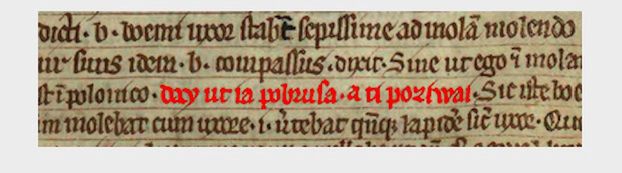 dicti · b · boemi uxor stabat sepissime ad molā molendo
ur suus idem · b · compassus · dixit · Sine ut ego ī molar
st ī polonico · day ut ia pobrusa · a ti poziwai · Sic iste boe
m molebat cum uxore · i · vertebat qn̄q lapidē sic̄ uxor · Quo